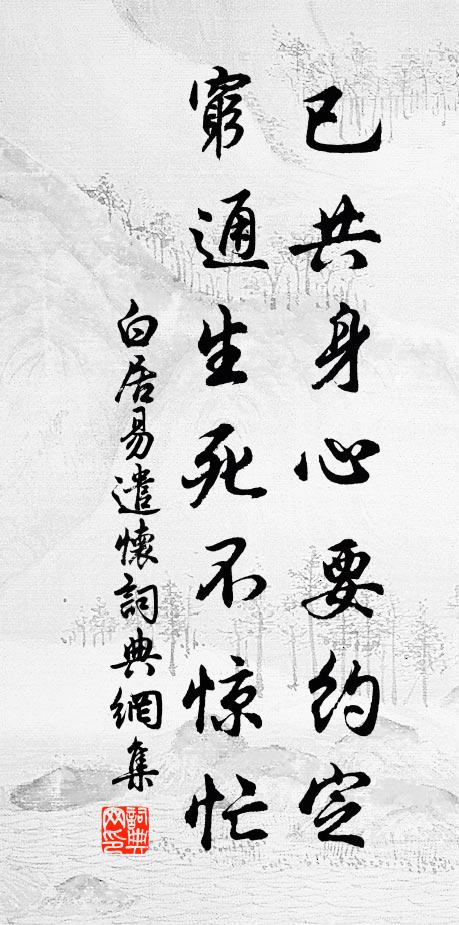 已共身心要约定
窮通生死不惊忙
白居易遣懷詞典網集
詞典网印